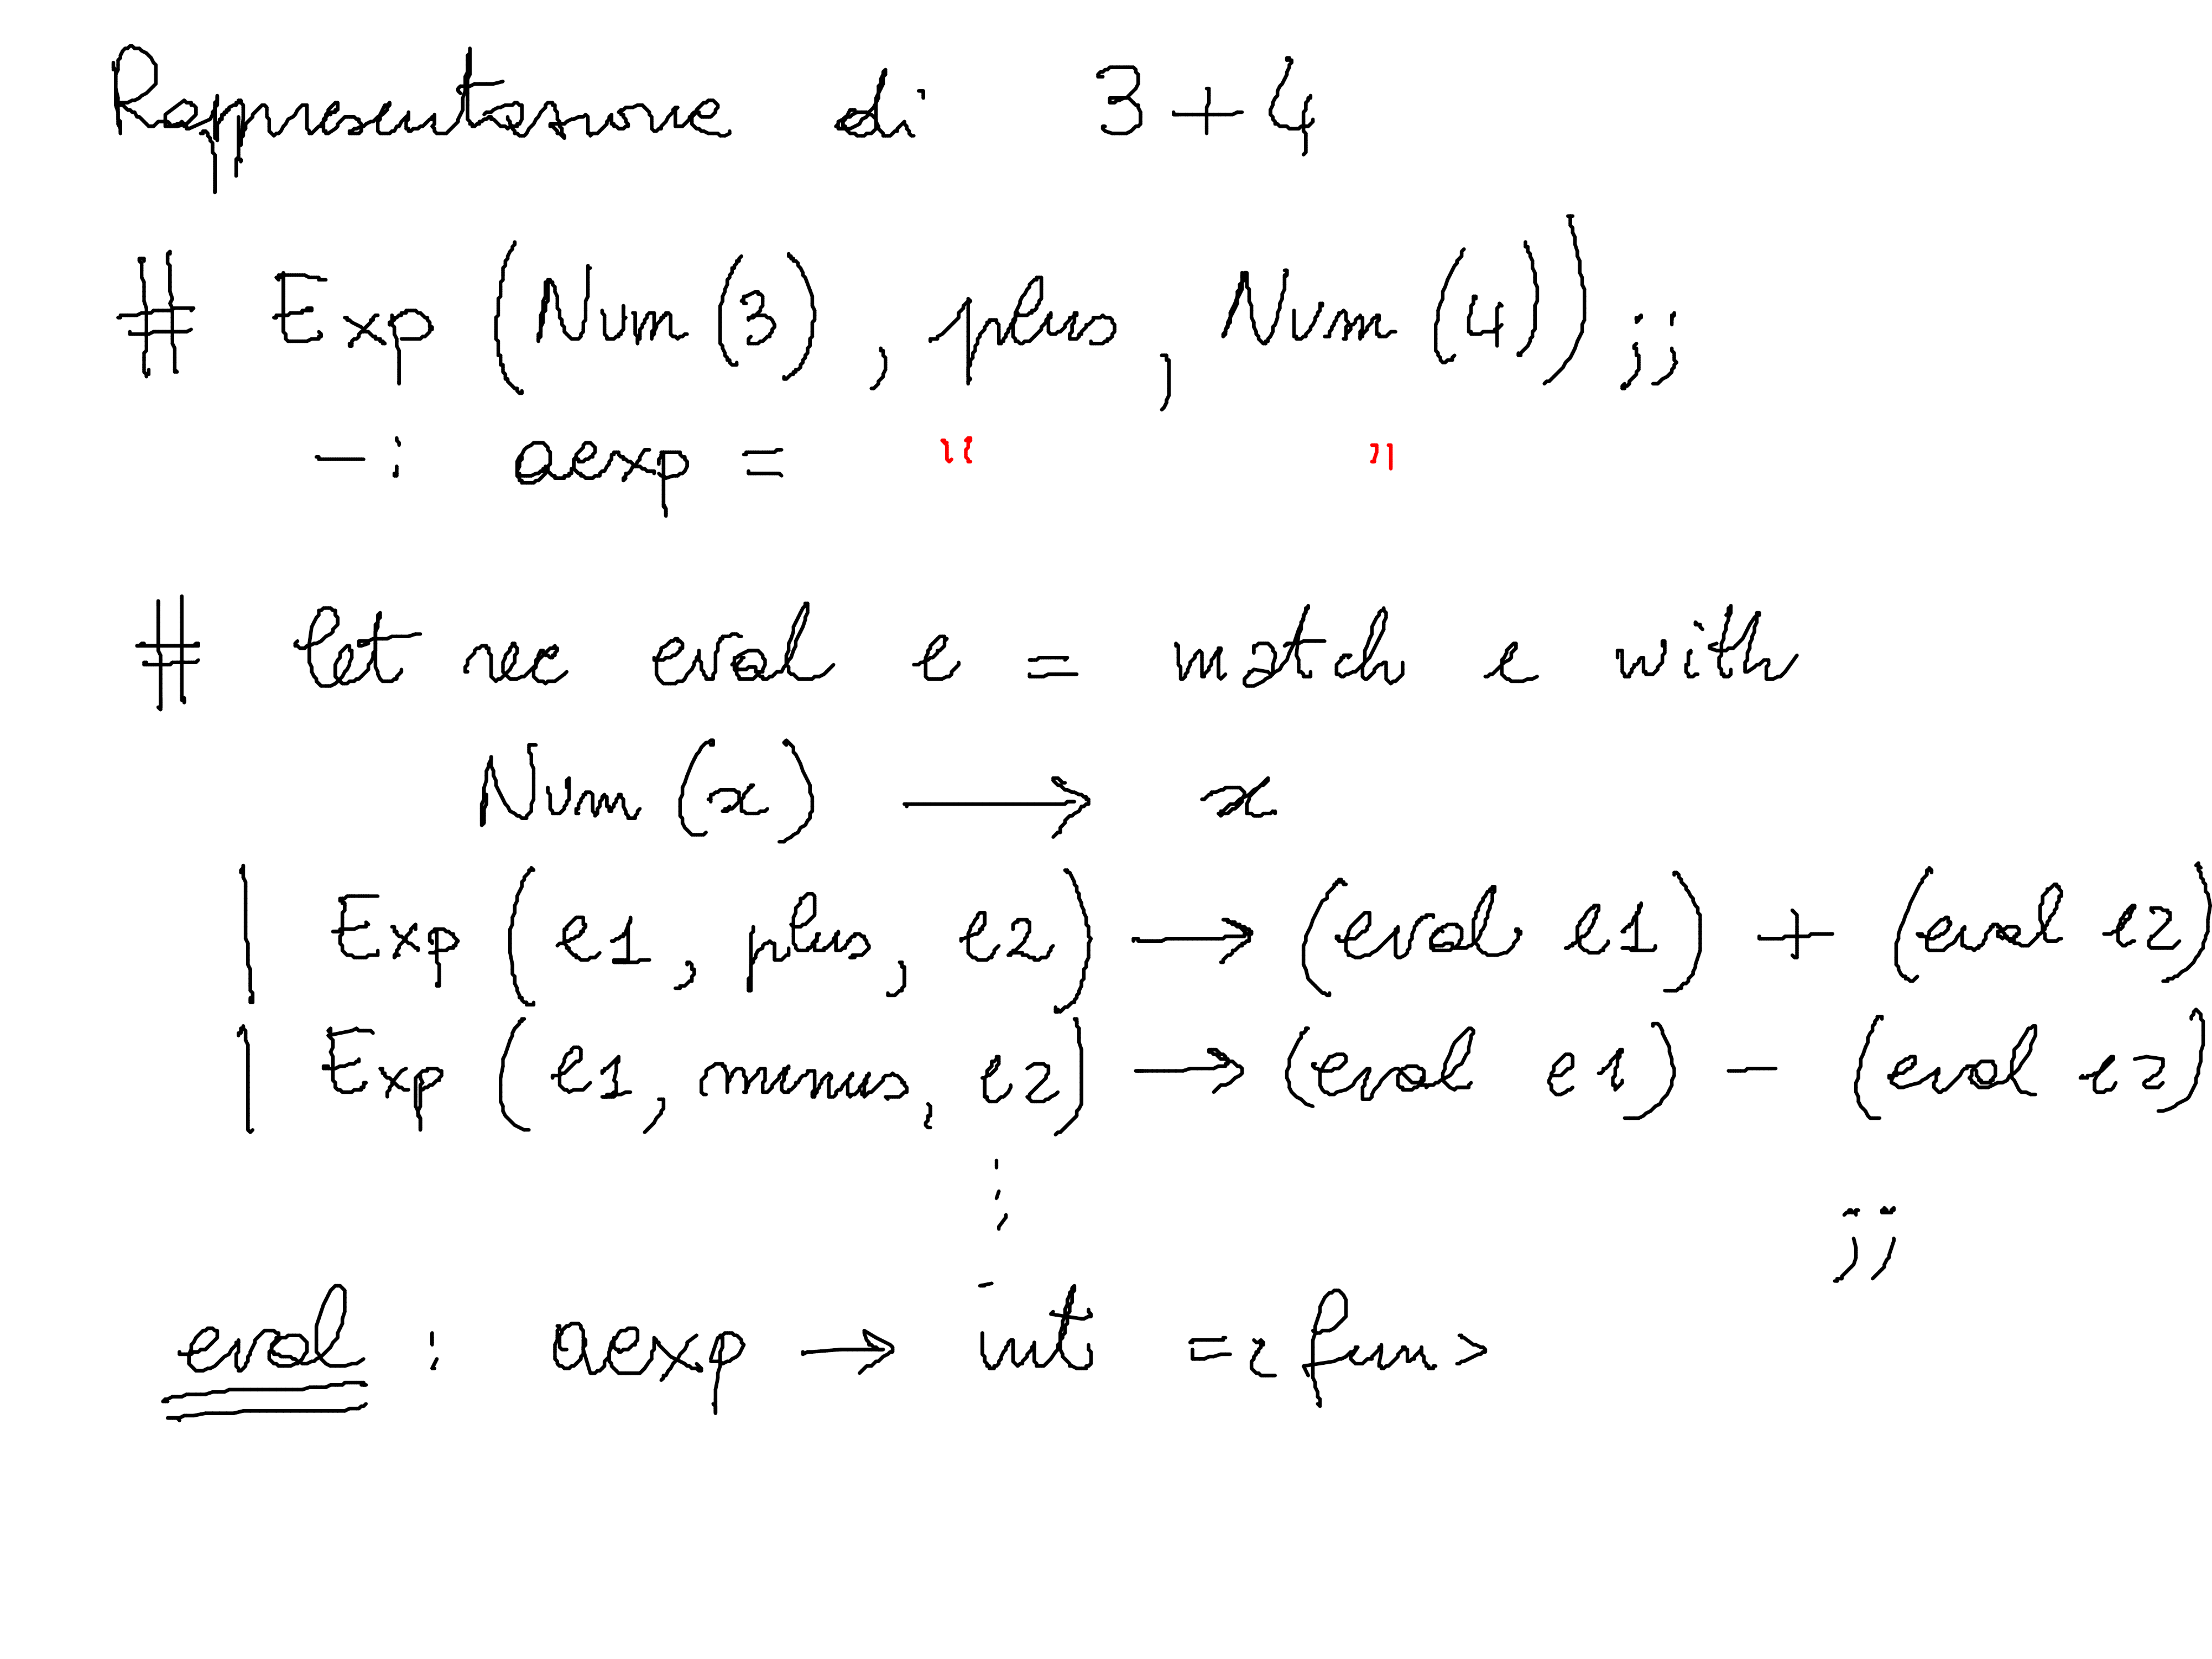 Rappresentazione di 3 + 4
# Exp (Num (3), plus, Num (4)) ;;
- : aexp = " "
# let rec eval e = match e with
Num (x) → x
| Exp (e1, plus, e2) → (eval e1) + (eval e2)
| Exp (e1, minus, e2) → (eval e1) - (eval e2)
⋮
;;
eval : aexp → int = <fun>